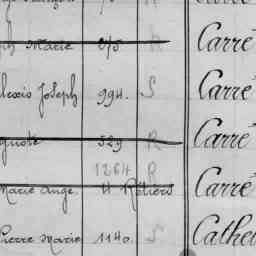 Marie 675 R Carré
Alexis Joseph 994. S Carré
Auguste 529 R Carré
1264 R
Marie Ange. 4 Rétiers Carré
Pierre Marie 1140. S Cathe